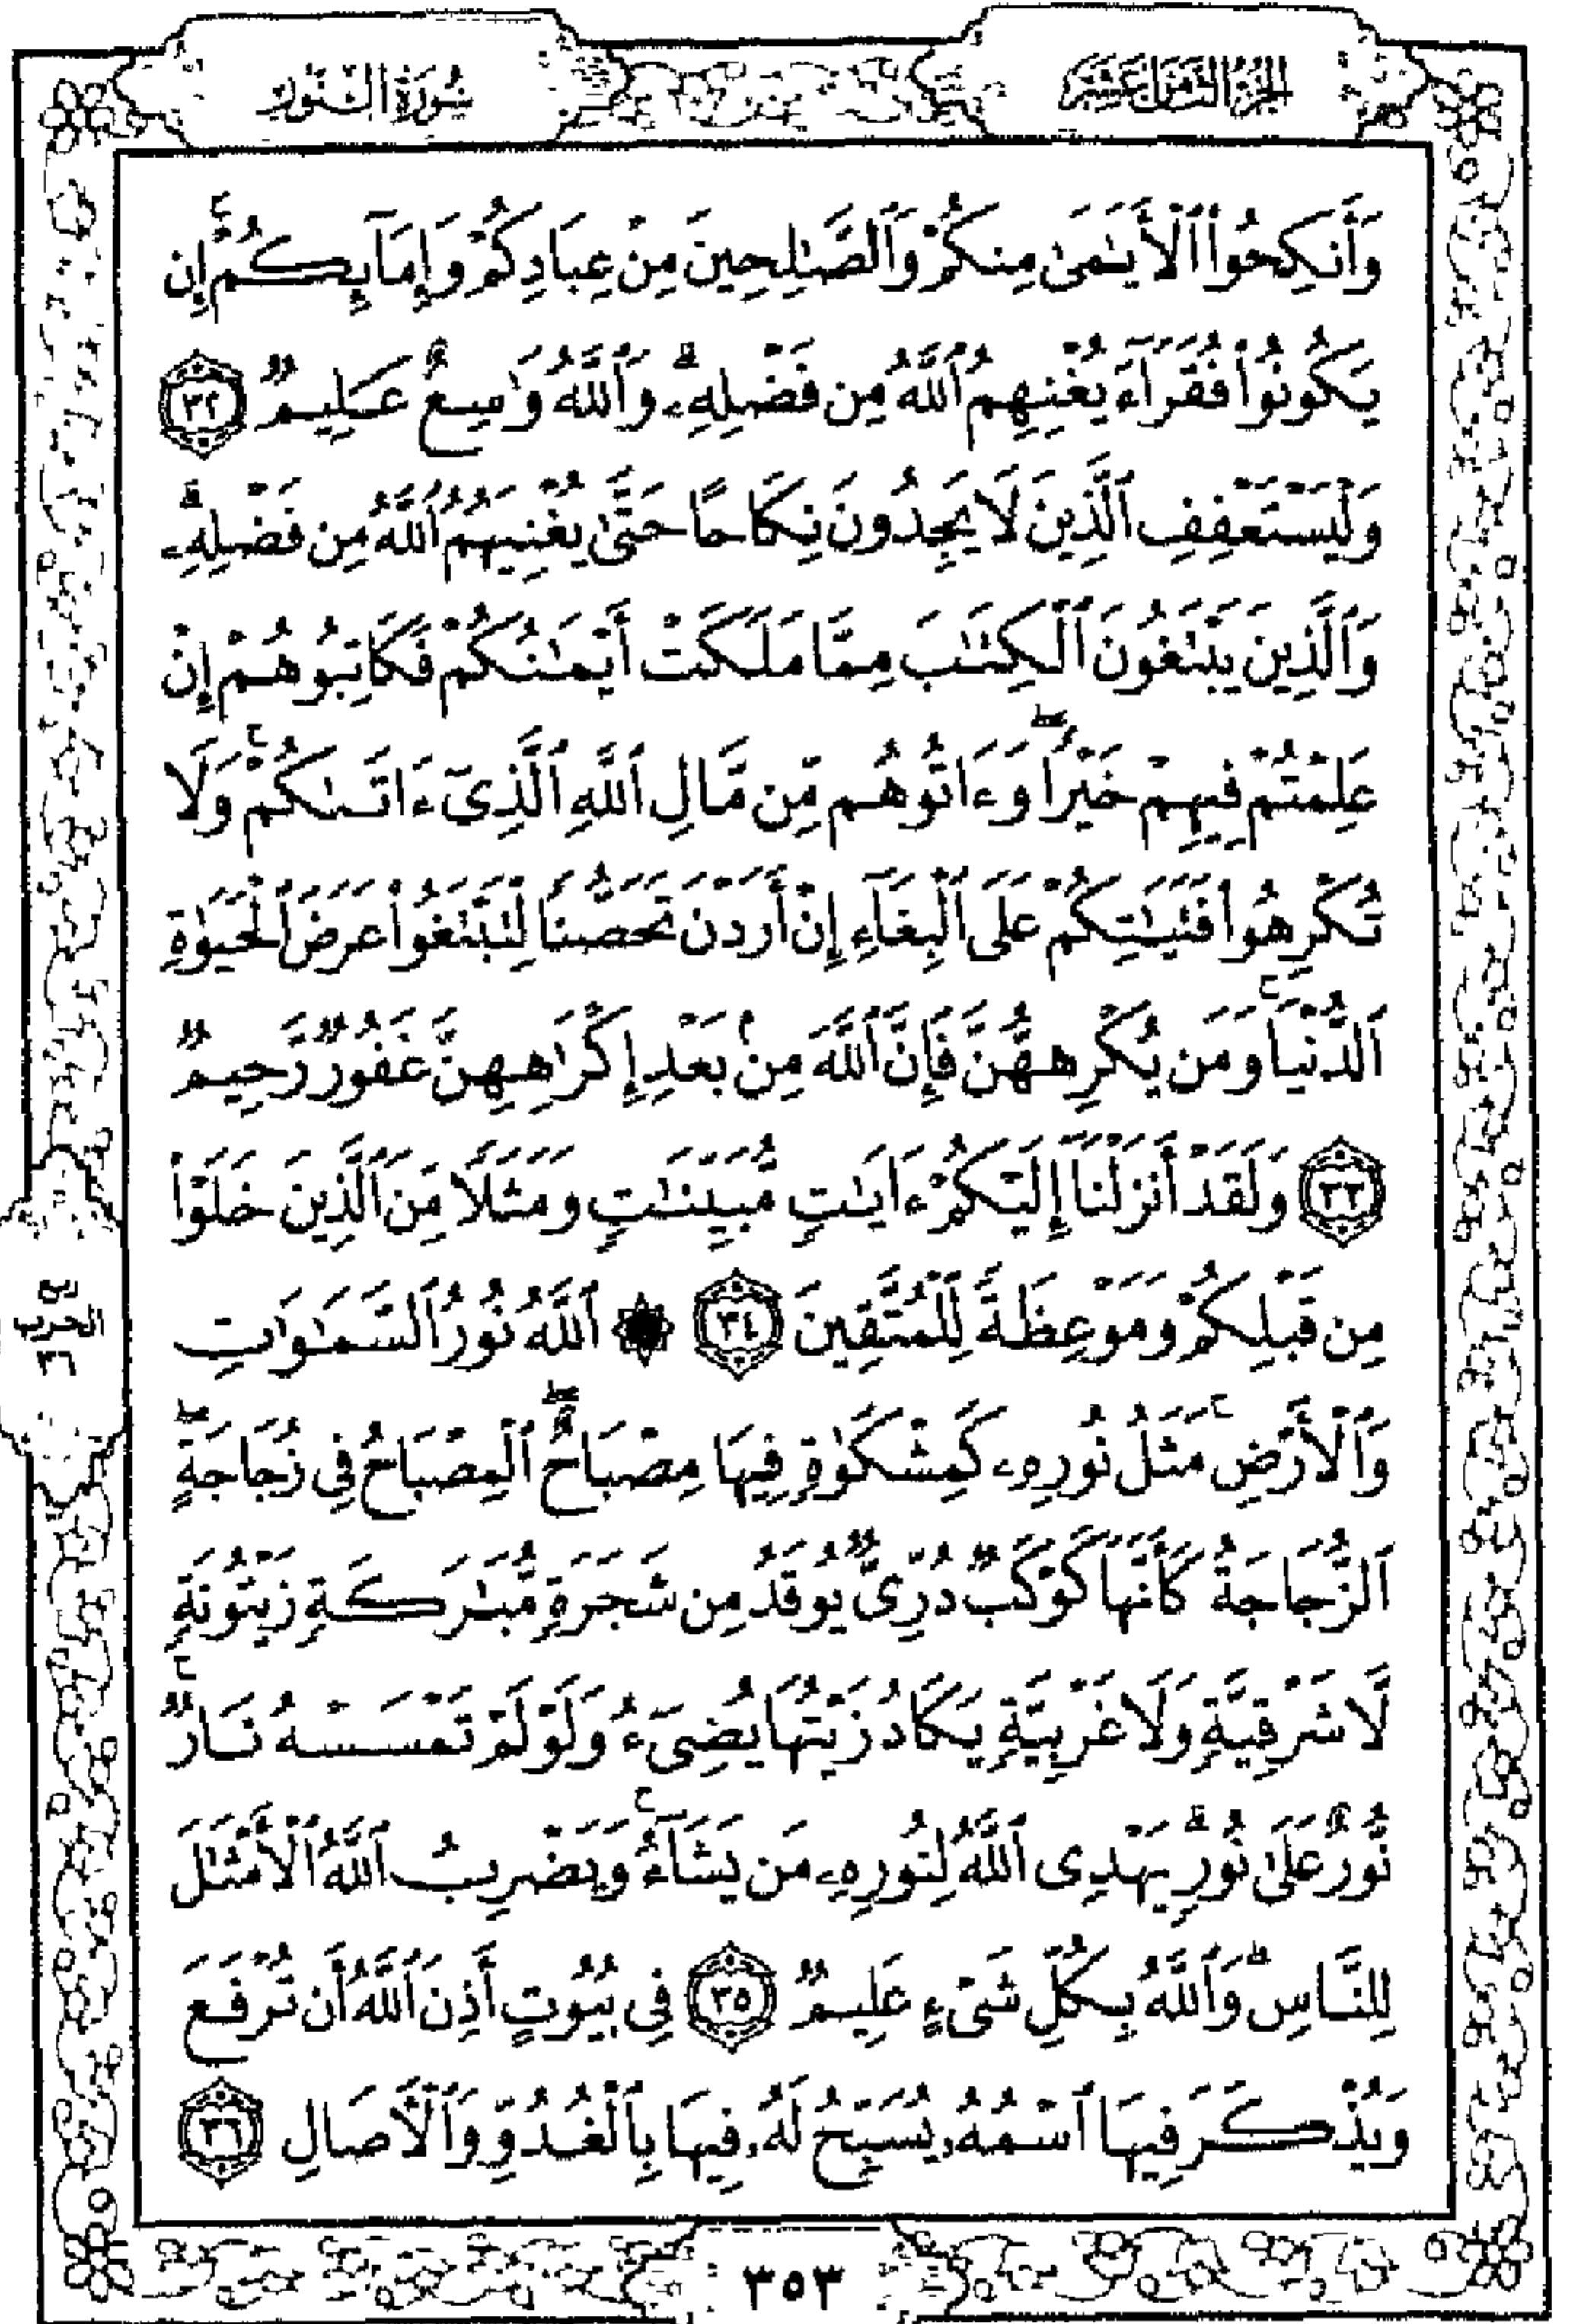 الجزء الثامن عشر
سورة النور
وَأَنكِحُوا۟ ٱلْأَيَـٰمَىٰ مِنكُمْ وَٱلصَّـٰلِحِينَ مِنْ عِبَادِكُمْ وَإِمَآئِكُمْ ۚ إِن
يَكُونُوا۟ فُقَرَآءَ يُغْنِهِمُ ٱللَّهُ مِن فَضْلِهِۦ ۗ وَٱللَّهُ وَٰسِعٌ عَلِيمٌ ٣٢
وَلْيَسْتَعْفِفِ ٱلَّذِينَ لَا يَجِدُونَ نِكَاحًا حَتَّىٰ يُغْنِيَهُمُ ٱللَّهُ مِن فَضْلِهِۦ ۗ
وَٱلَّذِينَ يَبْتَغُونَ ٱلْكِتَـٰبَ مِمَّا مَلَكَتْ أَيْمَـٰنُكُمْ فَكَاتِبُوهُمْ إِنْ
عَلِمْتُمْ فِيهِمْ خَيْرًا ۖ وَءَاتُوهُم مِّن مَّالِ ٱللَّهِ ٱلَّذِىٓ ءَاتَىٰكُمْ ۚ وَلَا
تُكْرِهُوا۟ فَتَيَـٰتِكُمْ عَلَى ٱلْبِغَآءِ إِنْ أَرَدْنَ تَحَصُّنًا لِّتَبْتَغُوا۟ عَرَضَ ٱلْحَيَوٰةِ
ٱلدُّنْيَا ۚ وَمَن يُكْرِههُّنَّ فَإِنَّ ٱللَّهَ مِنۢ بَعْدِ إِكْرَٰهِهِنَّ غَفُورٌ رَّحِيمٌ
٣٣ وَلَقَدْ أَنزَلْنَآ إِلَيْكُمْ ءَايَـٰتٍ مُّبَيِّنَـٰتٍ وَمَثَلًا مِّنَ ٱلَّذِينَ خَلَوْا۟
مِن قَبْلِكُمْ وَمَوْعِظَةً لِّلْمُتَّقِينَ ٣٤ ۞ ٱللَّهُ نُورُ ٱلسَّمَـٰوَٰتِ
وَٱلْأَرْضِ ۚ مَثَلُ نُورِهِۦ كَمِشْكَوٰةٍ فِيهَا مِصْبَاحٌ ۖ ٱلْمِصْبَاحُ فِى زُجَاجَةٍ ۖ
ٱلزُّجَاجَةُ كَأَنَّهَا كَوْكَبٌ دُرِّىٌّ يُوقَدُ مِن شَجَرَةٍ مُّبَـٰرَكَةٍ زَيْتُونَةٍ
لَّا شَرْقِيَّةٍ وَلَا غَرْبِيَّةٍ يَكَادُ زَيْتُهَا يُضِىٓءُ وَلَوْ لَمْ تَمْسَسْهُ نَارٌ ۚ
نُّورٌ عَلَىٰ نُورٍ ۗ يَهْدِى ٱللَّهُ لِنُورِهِۦ مَن يَشَآءُ ۚ وَيَضْرِبُ ٱللَّهُ ٱلْأَمْثَـٰلَ
لِلنَّاسِ ۗ وَٱللَّهُ بِكُلِّ شَىْءٍ عَلِيمٌ ٣٥ فِى بُيُوتٍ أَذِنَ ٱللَّهُ أَن تُرْفَعَ
وَيُذْكَرَ فِيهَا ٱسْمُهُۥ يُسَبِّحُ لَهُۥ فِيهَا بِٱلْغُدُوِّ وَٱلْـَٔاصَالِ ٣٦
الحزب
٣٥٣